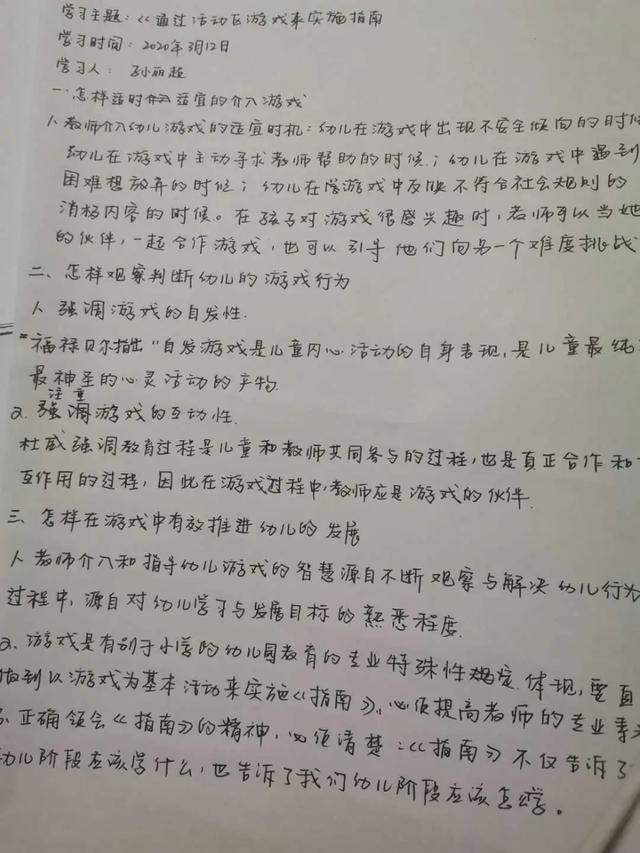 学习主题:《通过活动区游戏来实施指南
学习时间:2020年3月12日
学习人:孙丽超
一、怎样适时适宜的介入游戏
1、教师介入幼儿游戏的适宜时机:幼儿在游戏中出现不安全倾向的时候
幼儿在游戏中主动寻求教师帮助的时候;幼儿在游戏中遇到
困难想放弃的时候;幼儿在游戏中反映不符合社会规则的
消极内容的时候。在孩子对游戏很感兴趣时,老师可以当她
的伙伴,一起合作游戏,也可以引导他们向另一个难度挑战
二、怎样观察判断幼儿的游戏行为
1、强调游戏的自发性.
福禄贝尔指出"自发游戏是儿童内心活动的自身表现,是儿童最纯
最神圣的心灵活动的产物.
注重
2.强调游戏的互动性.
杜威强调教育过程是儿童和教师共同参与的过程,也是真正合作和
互作用的过程,因此在游戏过程中,教师应是游戏的伙伴.
三、怎样在游戏中有效推进幼儿的发展
1、教师介入和指导幼儿游戏的智慧源自不断观察与解决幼儿行为
过程中,源自对幼儿学习与发展目标的熟悉程度.
2、游戏是有别于小学的幼儿园教育的专业特殊性体现,要真
做到以游戏为基本活动来实施《指南》,必须提高老师的专业素
正确领会《指南》的精神,必须清楚:《指南》不仅告诉了
幼儿阶段应该学什么,也告诉了我们幼儿阶段应该怎学。